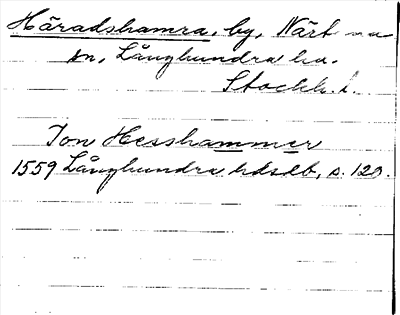 Häradshamra, by, Närt una
sn, Långhundra hd.
Stockh. l.
Jon Hesshammer
1559 Långhundra hdsdb, s. 120.